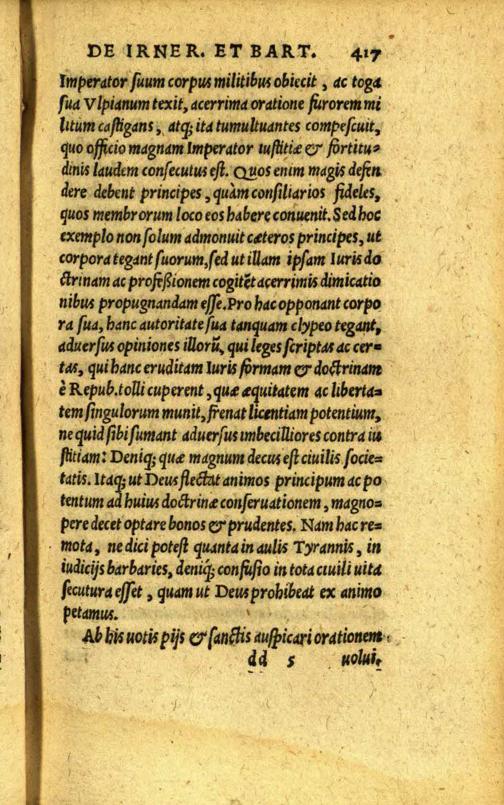 DE IRNER. ET BART. 417
Imperator suum corpus militibus obiecit, ac toga
sua Vlpianum texit, acerrima oratione furorem mi
litum castigans, atq; ita tumultuantes compescuit,
quo officio magnam Imperator iustitiæ & fortitu-
dinis laudem consecutus est. Quos enim magis defen
dere debent principes, quàm consiliarios fideles,
quos membrorum loco eos habere conuenit. Sed hoc
exemplo non solum admonuit cæteros principes, ut
corpora tegant suorum, sed ut illam ipsam Iuris do
ctrinam ac profeßionem cogitēt acerrimis dimicatio
nibus propugnandam esse. Pro hac opponant corpo
ra sua, hanc autoritate sua tanquam clypeo tegant,
aduersus opiniones illorū, qui leges scriptas ac cer-
tas, qui hanc eruditam Iuris formam & doctrinam
è Repub. tolli cuperent, quæ æquitatem ac liberta-
tem singulorum munit, frenat licentiam potentium,
ne quid sibi sumant aduersus imbecilliores contra iu
stitiam: Deniq; quæ magnum decus est ciuilis socie-
tatis. Itaq; ut Deus flectat animos principum ac po
tentum ad huius doctrinæ conseruationem, magno-
pere decet optare bonos & prudentes. Nam hac re-
mota, ne dici potest quanta in aulis Tyrannis, in
iudicijs barbaries, deniq; confusio in tota ciuili uita
secutura esset, quam ut Deus prohibeat ex animo
petamus.
Ab his uotis pijs & sanctis auspicari orationem
dd 5 uolui,